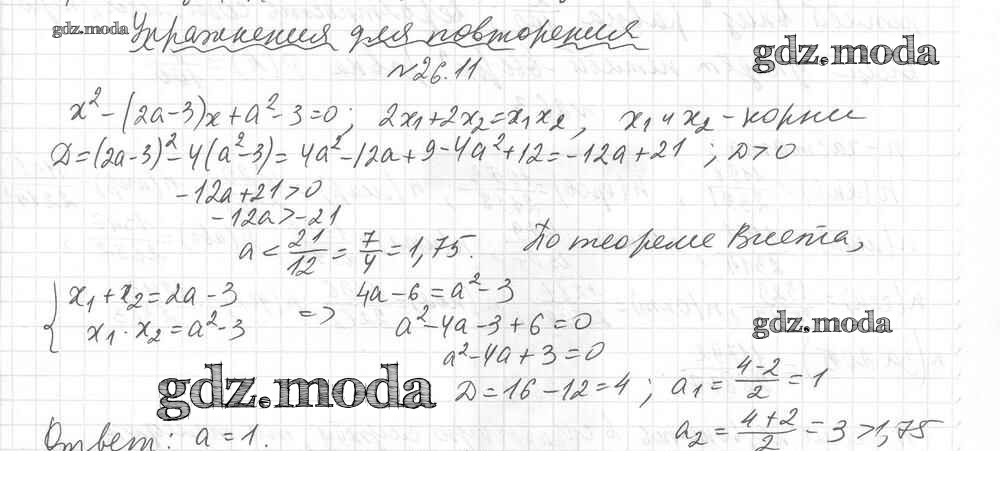 gdz.moda Упражнения для повторения
gdz.moda
№26.11
x² - (2a-3)x + a² - 3 = 0; 2x₁ + 2x₂ = x₁x₂, x₁ и x₂ - корни
D = (2a-3)² - 4(a²-3) = 4a² - 12a + 9 - 4a² + 12 = -12a + 21; D > 0
-12a + 21 > 0
-12a > -21
a < 21/12 = 7/4 = 1,75. По теореме Виета,
{ x₁ + x₂ = 2a - 3
x₁ · x₂ = a² - 3
=> 4a - 6 = a² - 3
a² - 4a - 3 + 6 = 0
gdz.moda
a² - 4a + 3 = 0
gdz.moda
D = 16 - 12 = 4; a₁ = (4-2)/2 = 1
a₂ = (4+2)/2 = 3 > 1,75
Ответ: a = 1.